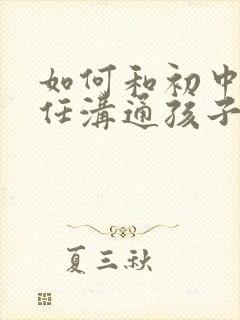 如何和初中
任溝通孩子
夏三秋